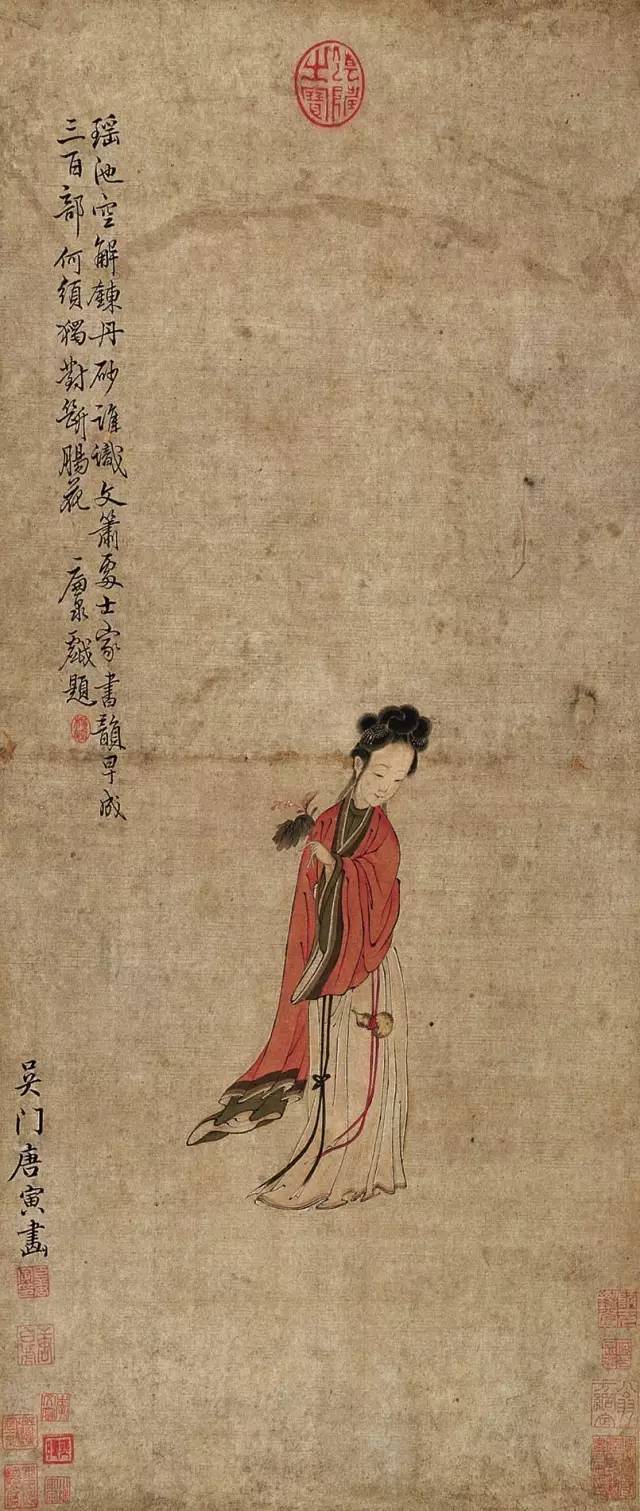 瑶池空解鍊丹砂誰識文簫處士家書韻早成
三百部何須獨對斷腸花
廉泉戲題
吴门唐寅畫